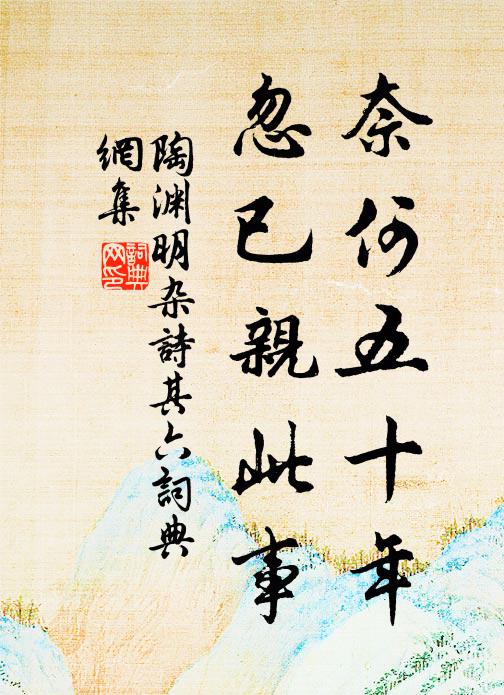 奈何五十年
忽已親此事
陶淵明杂詩其六詞典
網集
詞典
网印